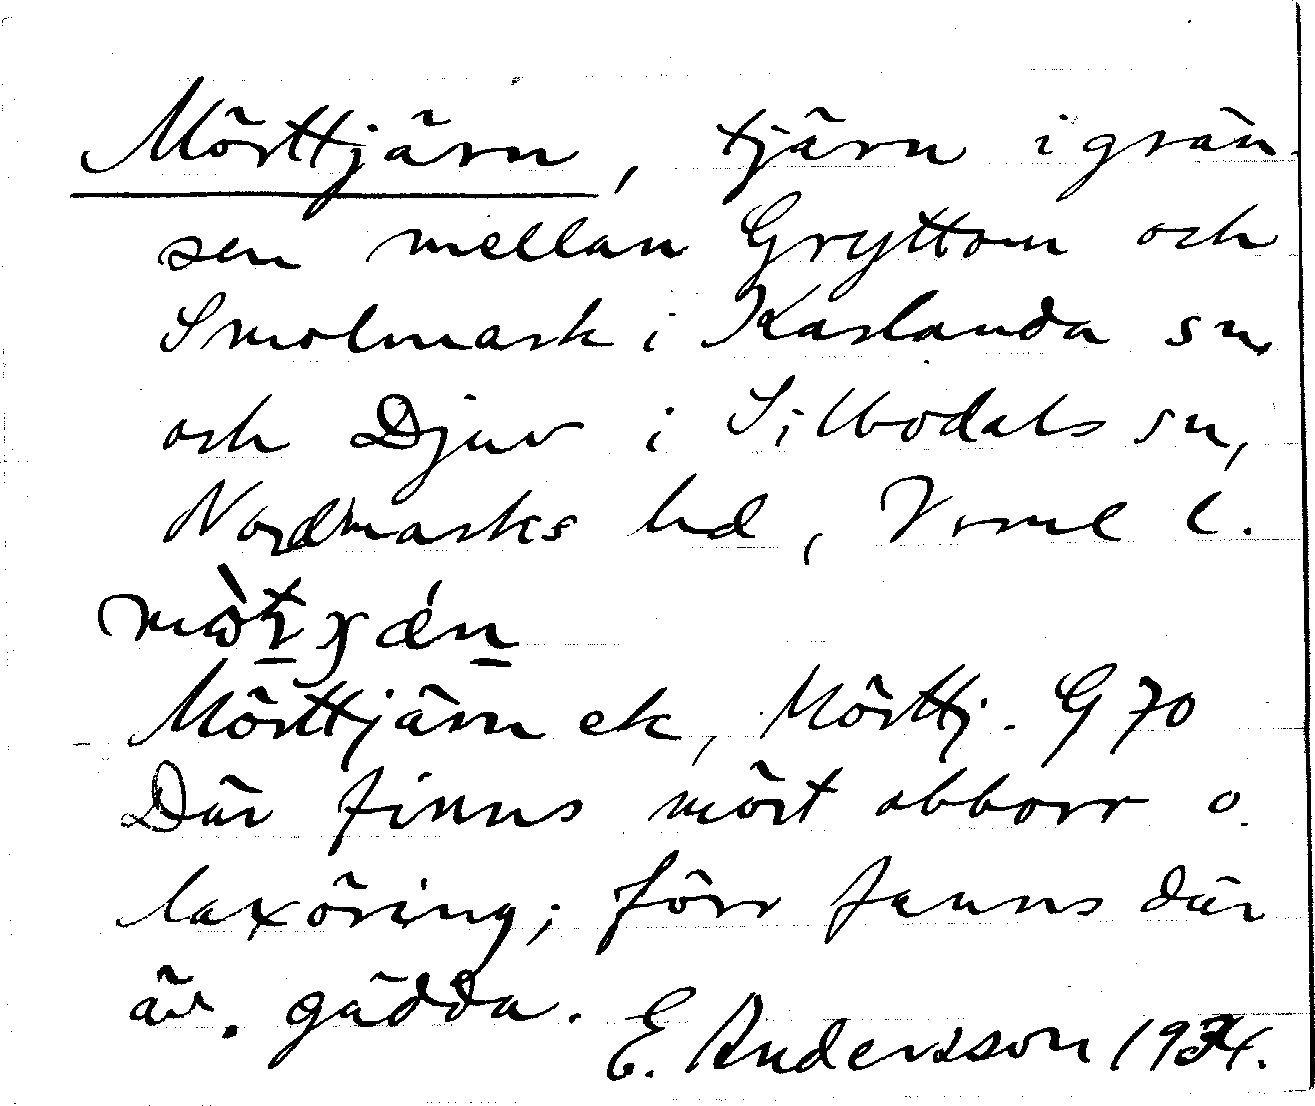 Mörttjärn, tjärn i grän-
sen mellan Gryttom och
Smolmark i Karlanda sn
och Djuv i Silbodals sn,
Nordmarks hd, Vrml l.
Mörttjärn ek, Mörttj. G 70
Där finns mört abborr o.
laxöring; förr fanns där
äv. gädda.
E. Andersson 1934.